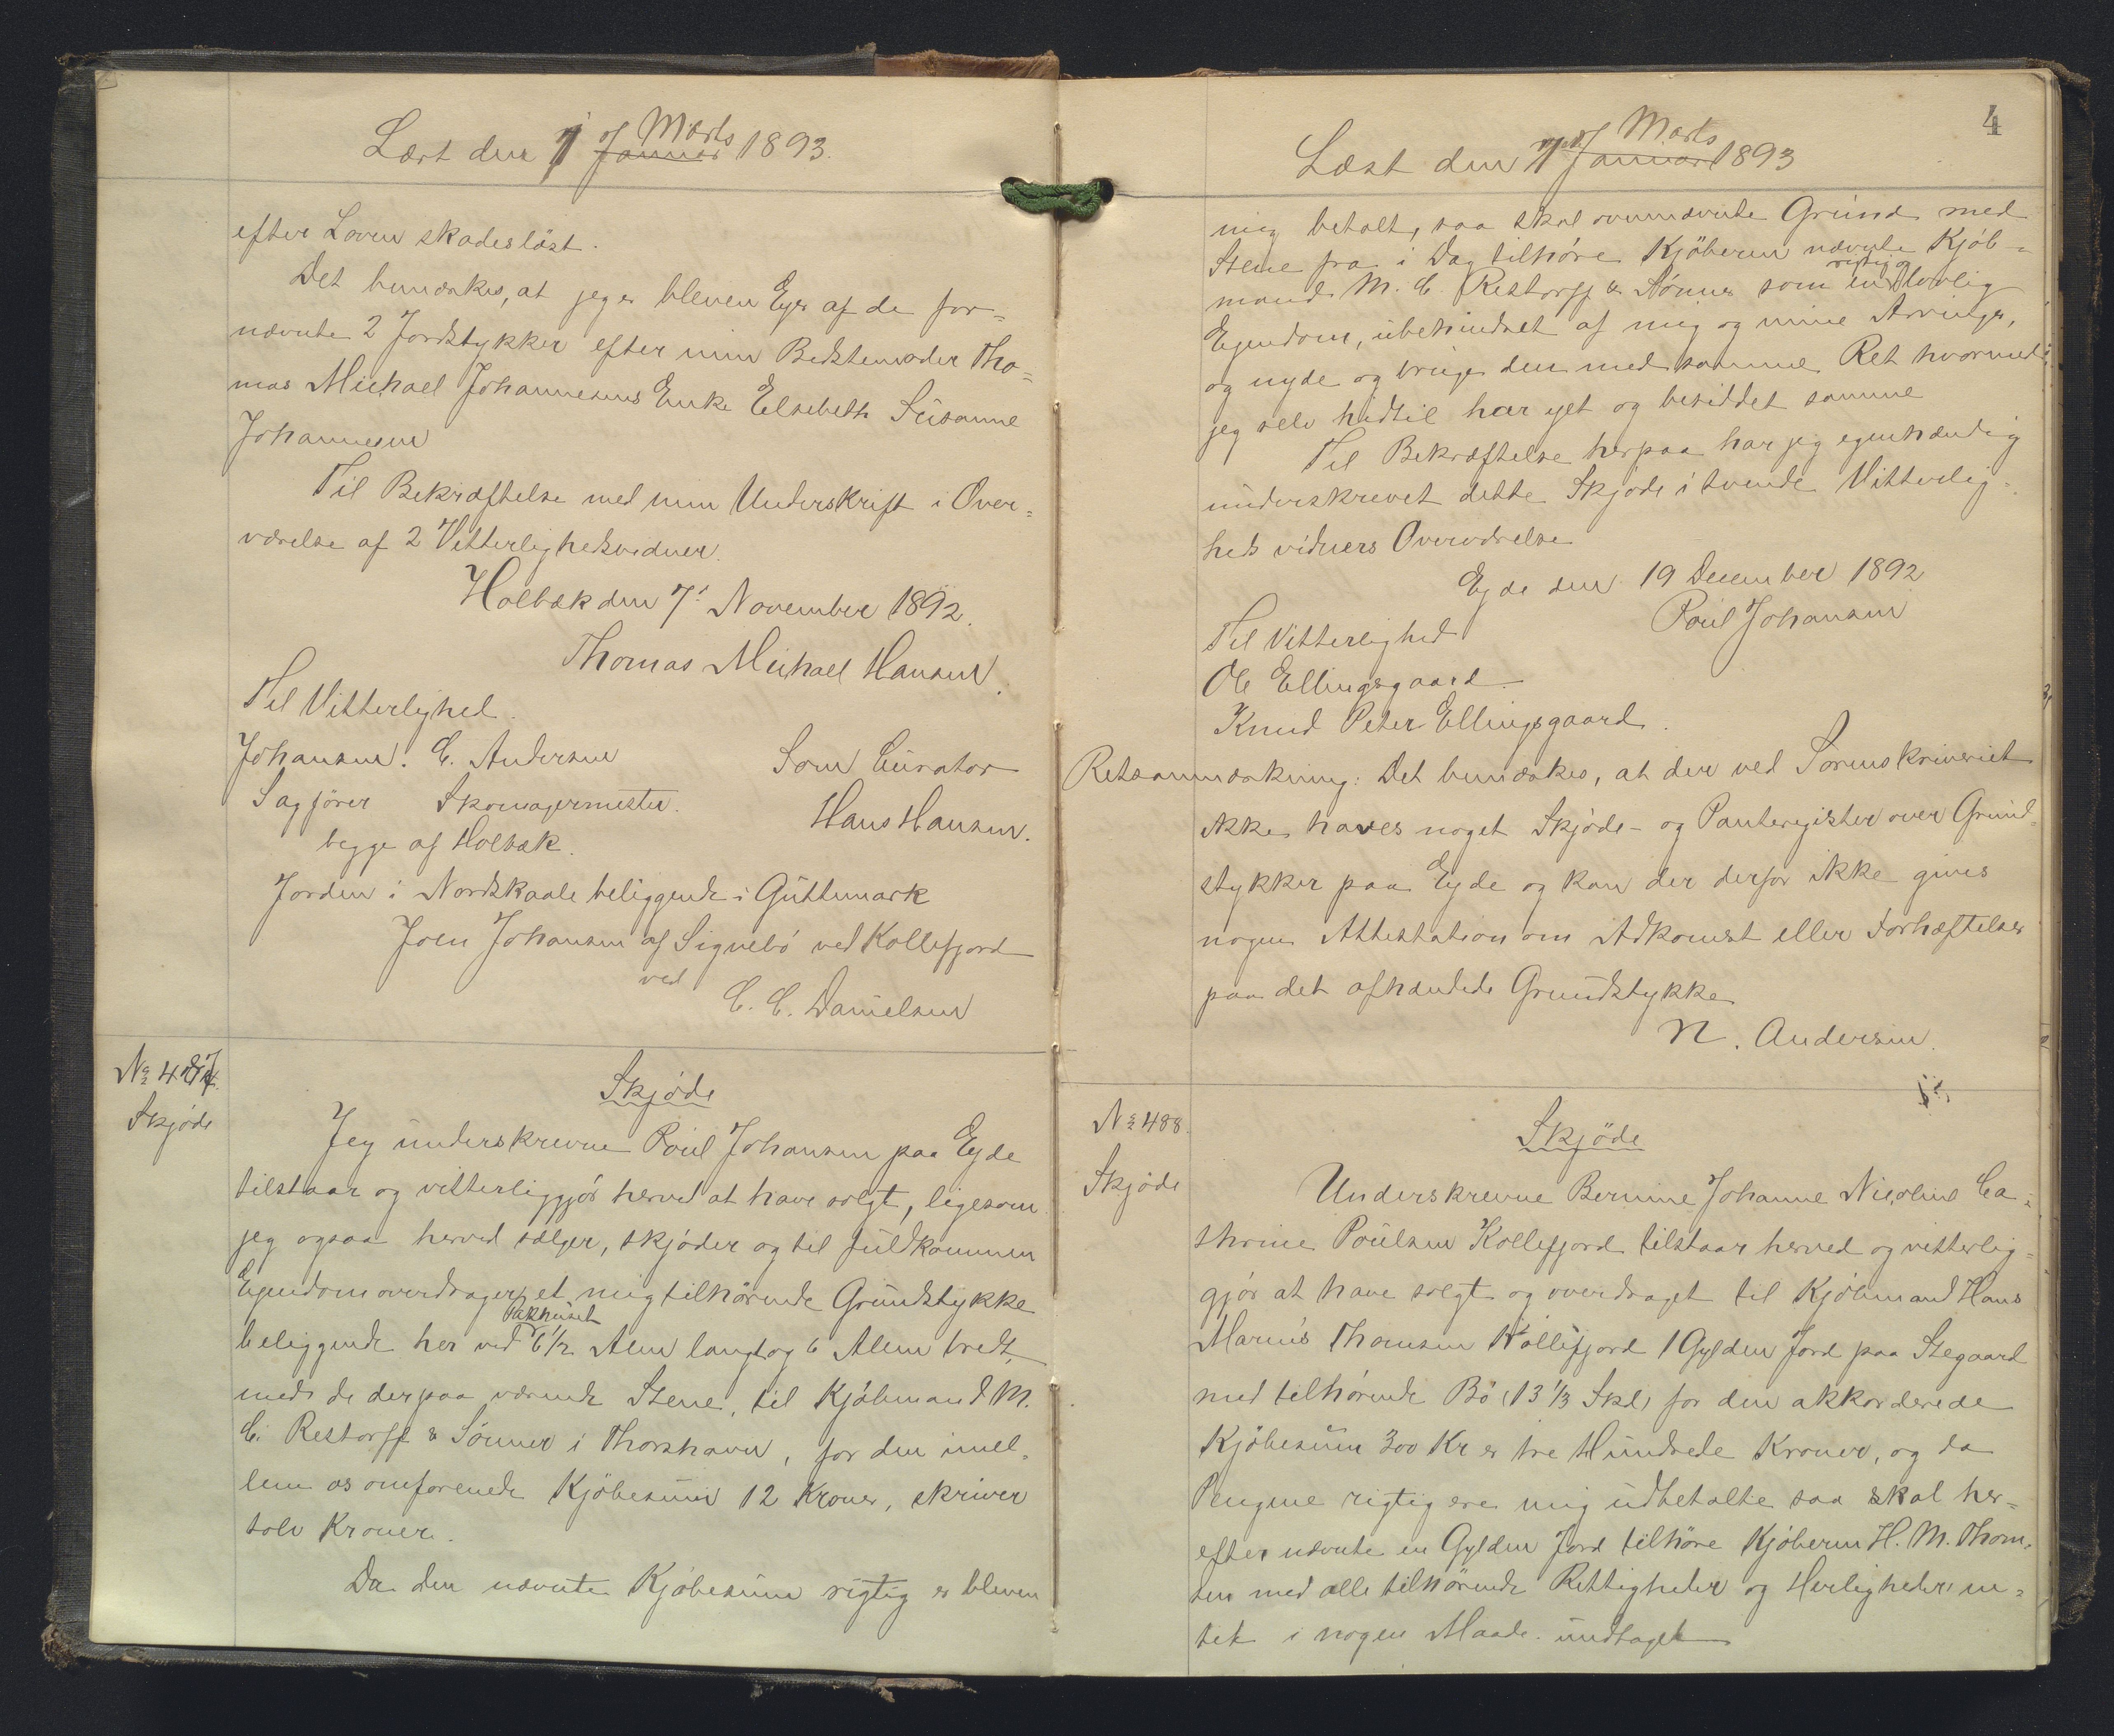 Læst den 1 Marts 1893.
efter Loven skadesløst.
Det bemærkes, at jeg er bleven Eyer af de for=
nævnte 2 Jordstykker efter min Bedstemoder Tho=
mas Michael Johannesens Enke Elsebeth Susanne
Johannesen
Til Bekræftelse med min Underskrift i Over=
værelse af 2 Vitterlighedsvidner.
Holbæk den 7' November 1892.
Thomas Michael Hansen.
Til Vitterlighed.
Johansen. C. Andersen Som Curator
Sagfører Skomagermester. Hans Hansen.
begge af Holbæk.
Jorden i Nordskaale beliggende i Guttemark
Joen Johansen af Signebø ved Kollefjord
ved
C. C. Danielsen
No 487.
Skjøde
Skjøde
Jeg underskrevne Poul Johansen paa Eyde
tilstaar og vitterliggjør herved at have solgt, ligesom
jeg ogsaa herved sælger, skjøder og til fuldkommen
Egendom overdrager et mig tilhørende Grundstykke
Pakhuset
beliggende her ved 6 1/2 Alen langt og 6 Alen bredt,
med de derpaa værende Stene, til Kjøbmand M.
C. Restorff & Sønner i Thorshavn, for den imel=
lem os omforenede Kjøbesum 12 Kroner, skriver
tolv Kroner.
Da den nævnte Kjøbesum rigtig er bleven
4
Læst den 1 Marts 1893
mig betalt, saa skal ovennævnte Grund med
Stene fra i Dag tilhøre Kjøberen nævnte Kjøb=
rigtig og
mand M. C. Restorff & Sønner som en lovlig
Egendom, ubehindret af mig og mine Arvinger,
og nyde og bruge den med samme Ret hvormed
jeg selv hidtil har ejet og besiddet samme
Til Bekræftelse herpaa har jeg egenhændig
underskrevet dette Skjøde i tvende Vitterlig=
heds vidners Overværelse
Eyde den 19 December 1892
Poul Johansen
Til Vitterlighed
Ole Ellingsgaard.
Knud Peter Ellingsgaard.
Retsanmærkning: Det bemærkes, at der ved Sorenskriveriet
ikke haves noget Skjøde- og Panteregister over Grund=
stykker paa Eyde og kan der derfor ikke gives
nogen Attestation om Adkomst eller Forhæftelser
paa det afhændede Grundstykke
N. Andersen.
No 488.
Skjøde
Skjøde
Underskrevne Bernine Johanne Nicoline Ca=
thrine Poulsen Kollefjord tilstaar herved og vitterlig=
gjør at have solgt og overdraget til Kjøbmand Hans
Marius Thomsen Kollefjord 1 Gylden Jord paa Stegaard
med tilhørende Bø (13 1/3 Skd) for den akkorderede
Kjøbesum 300 Kr er tre Hundrede Kroner, og da
Pengene rigtig ere mig udbetalte saa skal her=
efter nævnte en Gylden Jord tilhøre Kjøberen H. M. Thom=
sen med alle tilhørende Rettigheder og Herligheder in=
tet i nogen Maade undtaget